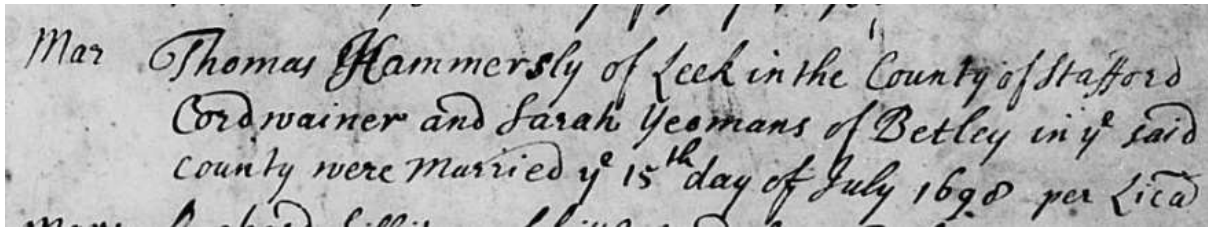 Mar Thomas Hammersly of Leek in the County of Stafford
Cordwainer and Sarah Yeomans of Betley in ye said
County were Married ye 15th day of July 1698 per Lica